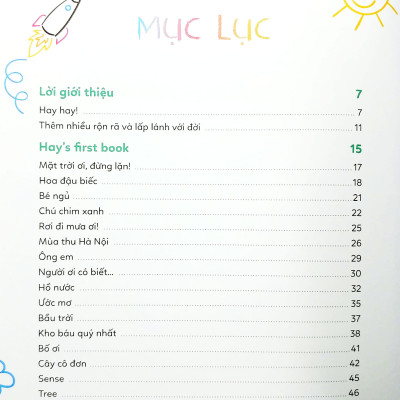 MỤC LỤC
Lời giới thiệu 7
Hay hay! 7
Thêm nhiều rộn rã và lấp lánh với đời 11
Hay's first book 15
Mặt trời ơi, đừng lặn! 17
Hoa đậu biếc 18
Bé ngủ 21
Chú chim xanh 22
Rơi đi mưa ơi! 25
Mùa thu Hà Nội 26
Ông em 29
Người ơi có biết... 30
Hồ nước 32
Ước mơ 35
Bầu trời 37
Kho báu quý nhất 38
Bố ơi 41
Cây cô đơn 42
Sense 45
Tree 46